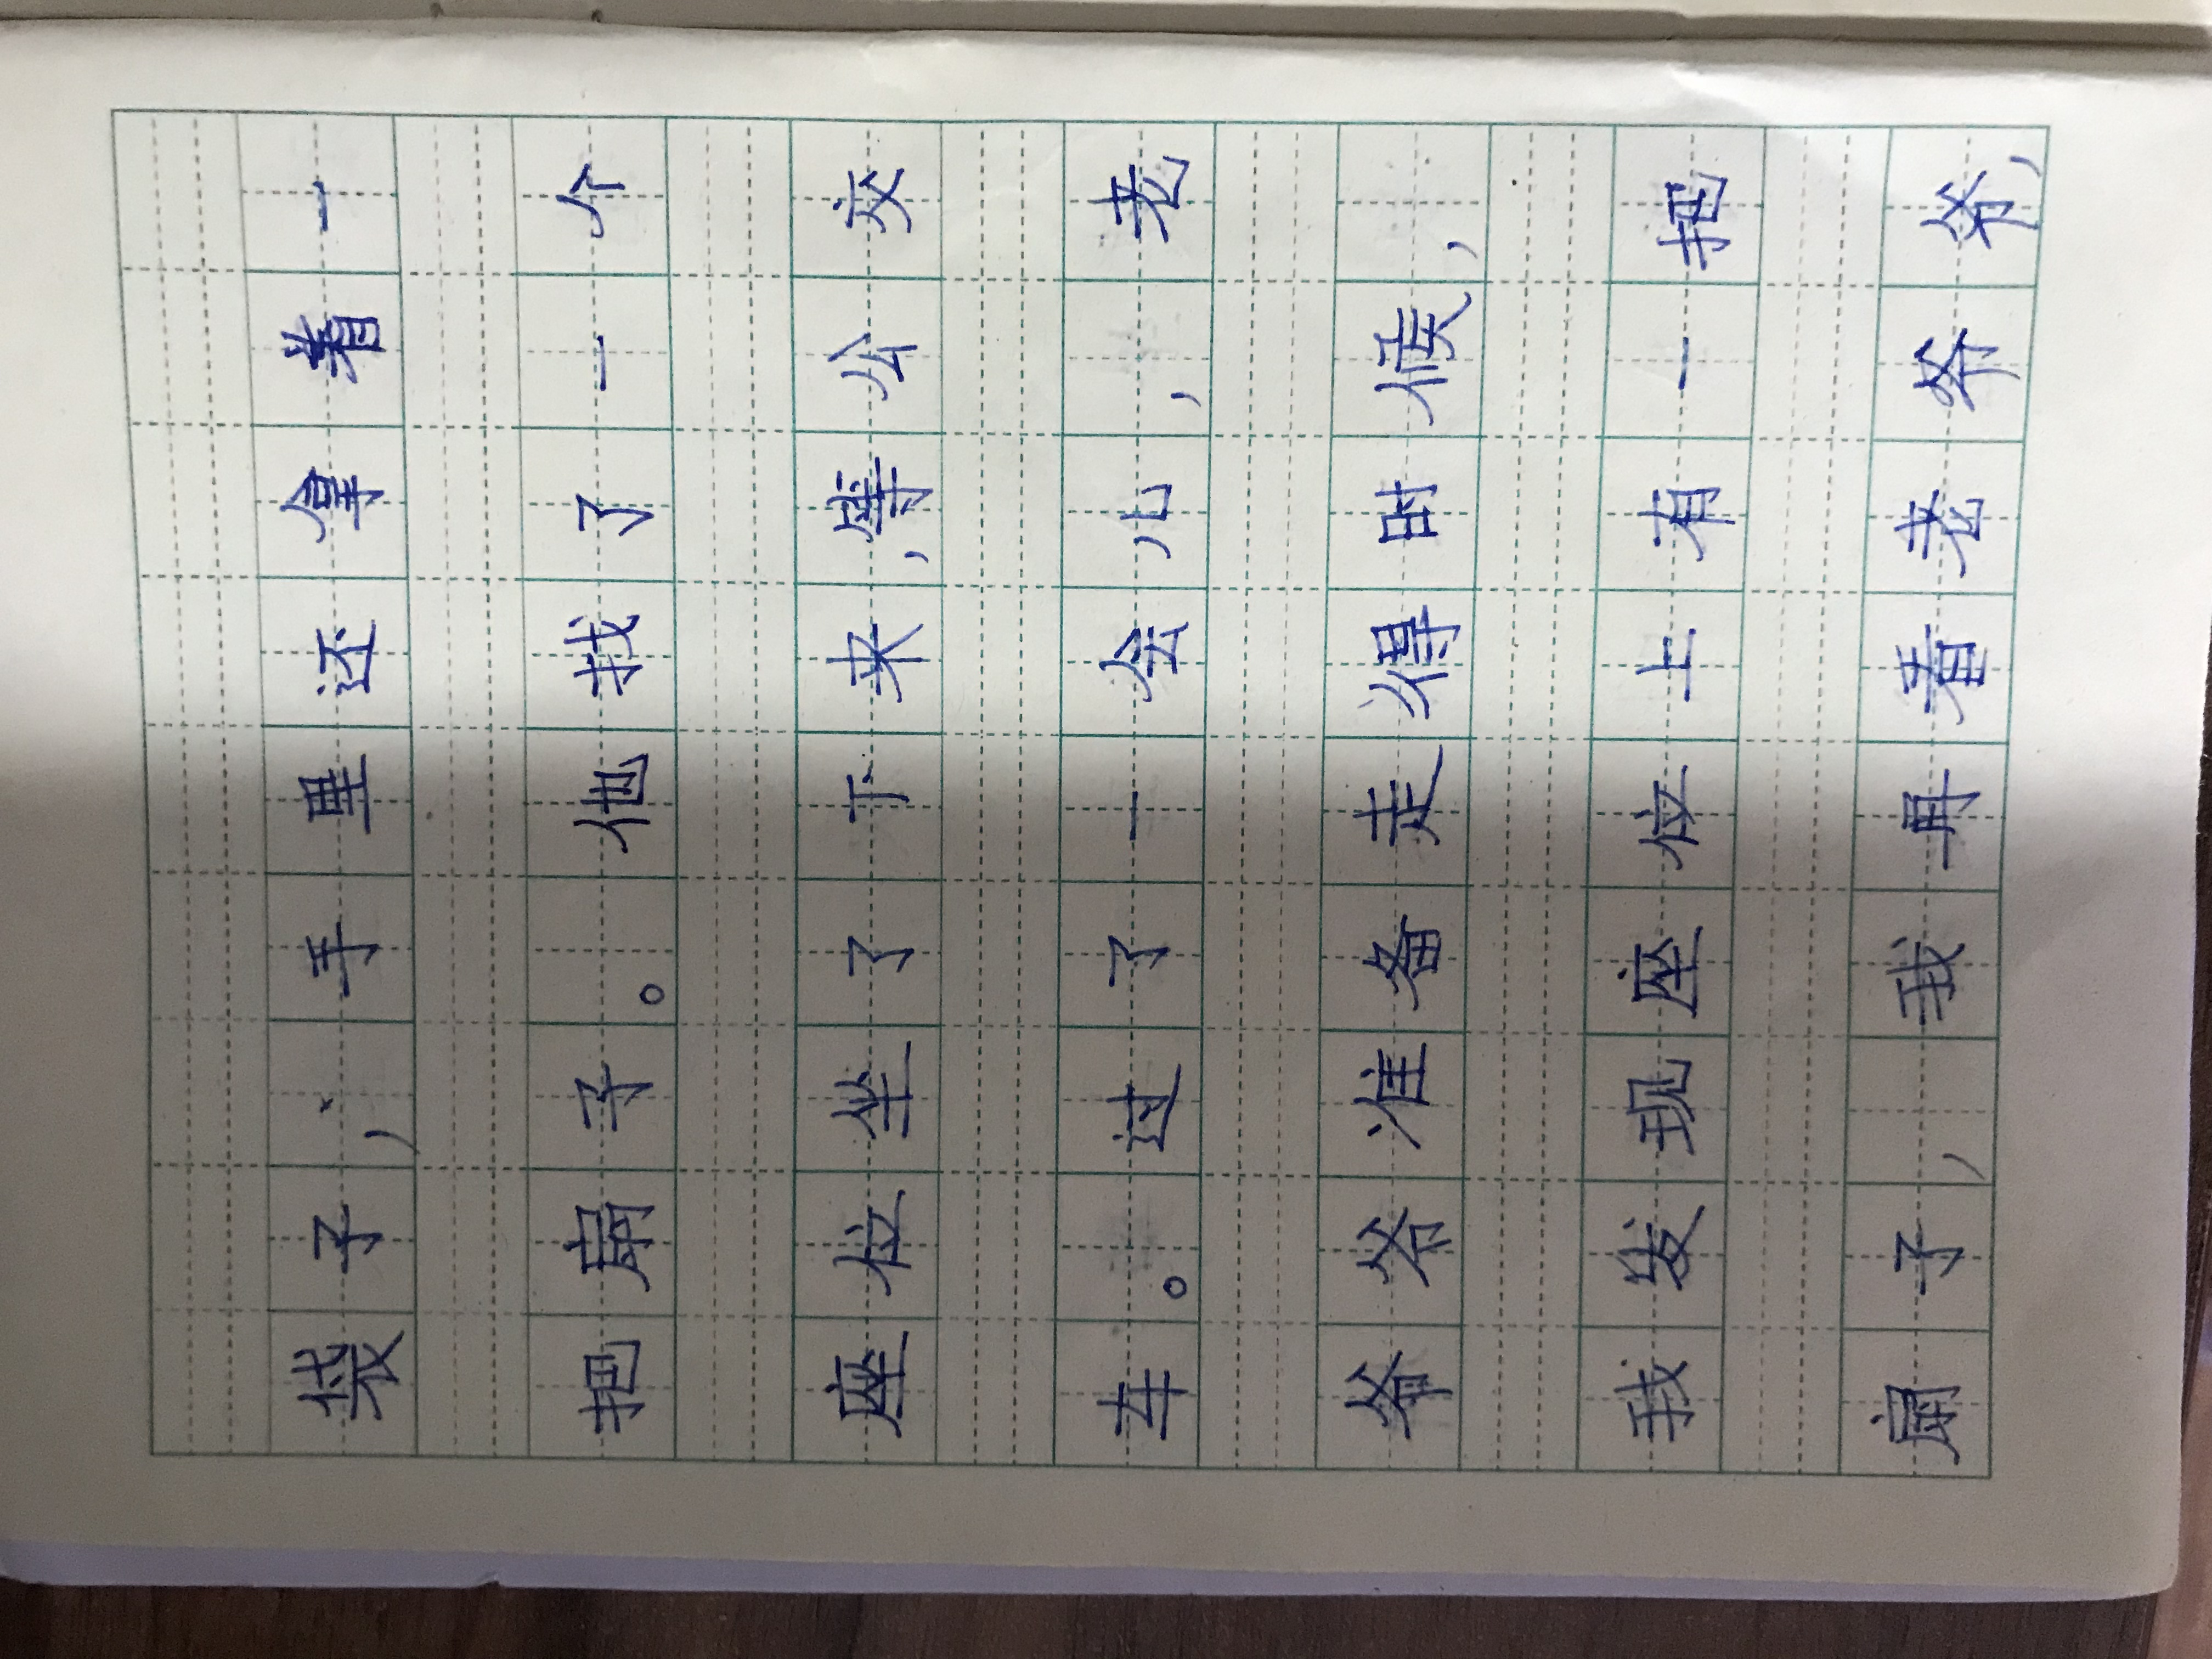 袋子，手里还拿着一
把扇子。他找了一个
座位坐了下来，等公交
车。过了一会儿，老
爷爷准备走得时候，
我发现座位上有一把
扇子，我再看老爷爷，